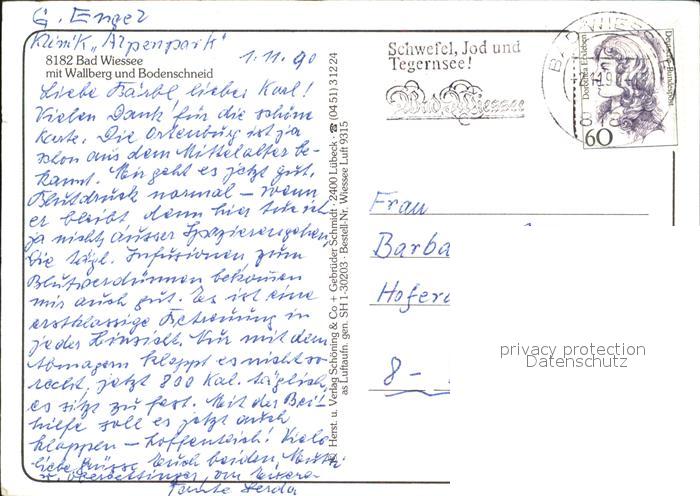 G. Engel
Klinik „Alpenpark"
1.11.90
8182 Bad Wiessee
mit Wallberg und Bodenschneid
Liebe Bärbl, lieber Karl!
Vielen Dank für die schöne
Karte. Die Ortenburg ist ja
schon aus dem Mittelalter be-
kannt. Mir geht es jetzt gut,
Blutdruck normal – wenn
er bleibt, denn hier tue ich
ja nichts ausser Spazierengehen.
Die tägl. Infusionen zum
Blutverdünnen bekommen
mir auch gut. Es ist eine
erstklassige Betreuung in
jeder Hinsicht. Nur mit dem
Abmagern klappt es nicht so
recht, jetzt 800 Kal. täglich
es sitzt zu fest. Mit der Bei-
hilfe soll es jetzt auch
klappen – hoffentlich! Viele
liebe Grüsse Euch beiden,
Tante Gerda
Herst. u. Verlag Schöning & Co + Gebrüder Schmidt · 2400 Lübeck · ☎ (0451) 31224
as Luftaufn. gen. SH 1-30203 · Bestell-Nr. Wiessee Luft 9315
Schwefel, Jod und
Tegernsee!
Bad Wiessee
BAD WIESSEE
Dorothea Erxleben
Deutsche Bundespost
60
Frau
Barba
Hofer
8 -
privacy protection
Datenschutz